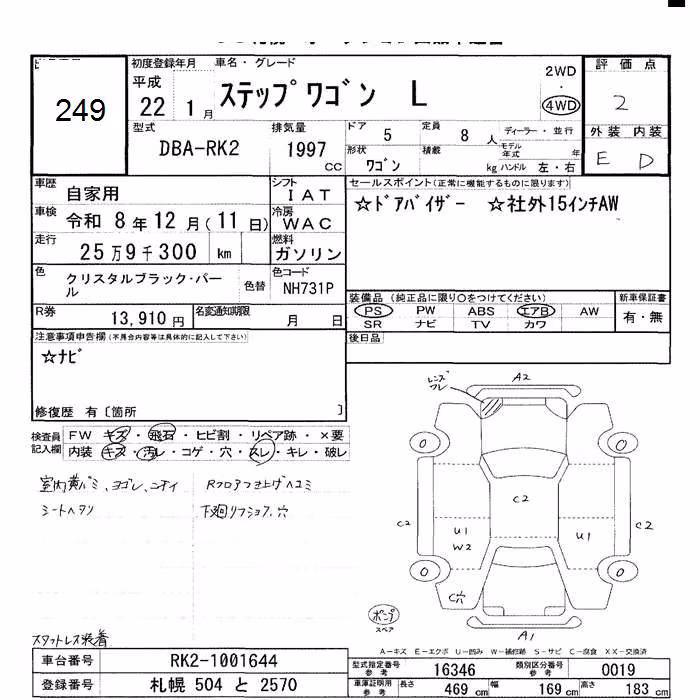 249
初度登録年月 車名・グレード
平成 22 1 月 ステップワゴン L
2WD ・ 4WD
評価点
2
外装 内装
E D
型式 DBA-RK2
排気量 1997 CC
ドア 5 定員 8 人 ディーラー・並行
形状 ワゴン 積載 kg モデル年式 年 ハンドル 左・右
車歴 自家用
シフト IAT
車検 令和 8 年 12 月 (11 日)
冷房 WAC
走行 25 万 9 千 300 km
燃料 ガソリン
色 クリスタルブラック・パール 色替
色コード NH731P
セールスポイント(正常に機能するものに限ります)
☆ドアバイザー ☆社外15インチAW
R券 13,910 円 名変通知期限 月 日
装備品 (純正品に限り○をつけてください) 新車保証書
PS PW ABS エアB AW 有・無
SR ナビ TV カワ
後日品
注意事項申告欄(不具合内容等は具体的に記入して下さい)
☆ナビ
修復歴 有〔箇所 〕
検査員記入欄 FW キズ・飛石・ヒビ割・リペア跡・×要
内装 キズ・汚レ・コゲ・穴・スレ・キレ・破レ
室内黄バミ、ヨゴレ、ニオイ
シートヘタリ
Rフロアつき上げヘコミ
下廻リフショク、穴
スタットレス装着
レンズ
A2
0 0
C2 C2 C2
U1 W2 U1
0 0
C穴
ポンプ
スペア
A1
A-キズ E-エクボ U-凹み W-補修跡 S-サビ C-腐食 XX-交換済
車台番号 RK2-1001644
登録番号 札幌 504 と 2570
型式指定番号 参考 16346 類別区分番号 参考 0019
車庫証明用 参考 長さ 469 cm 幅 169 cm 高さ 183 cm